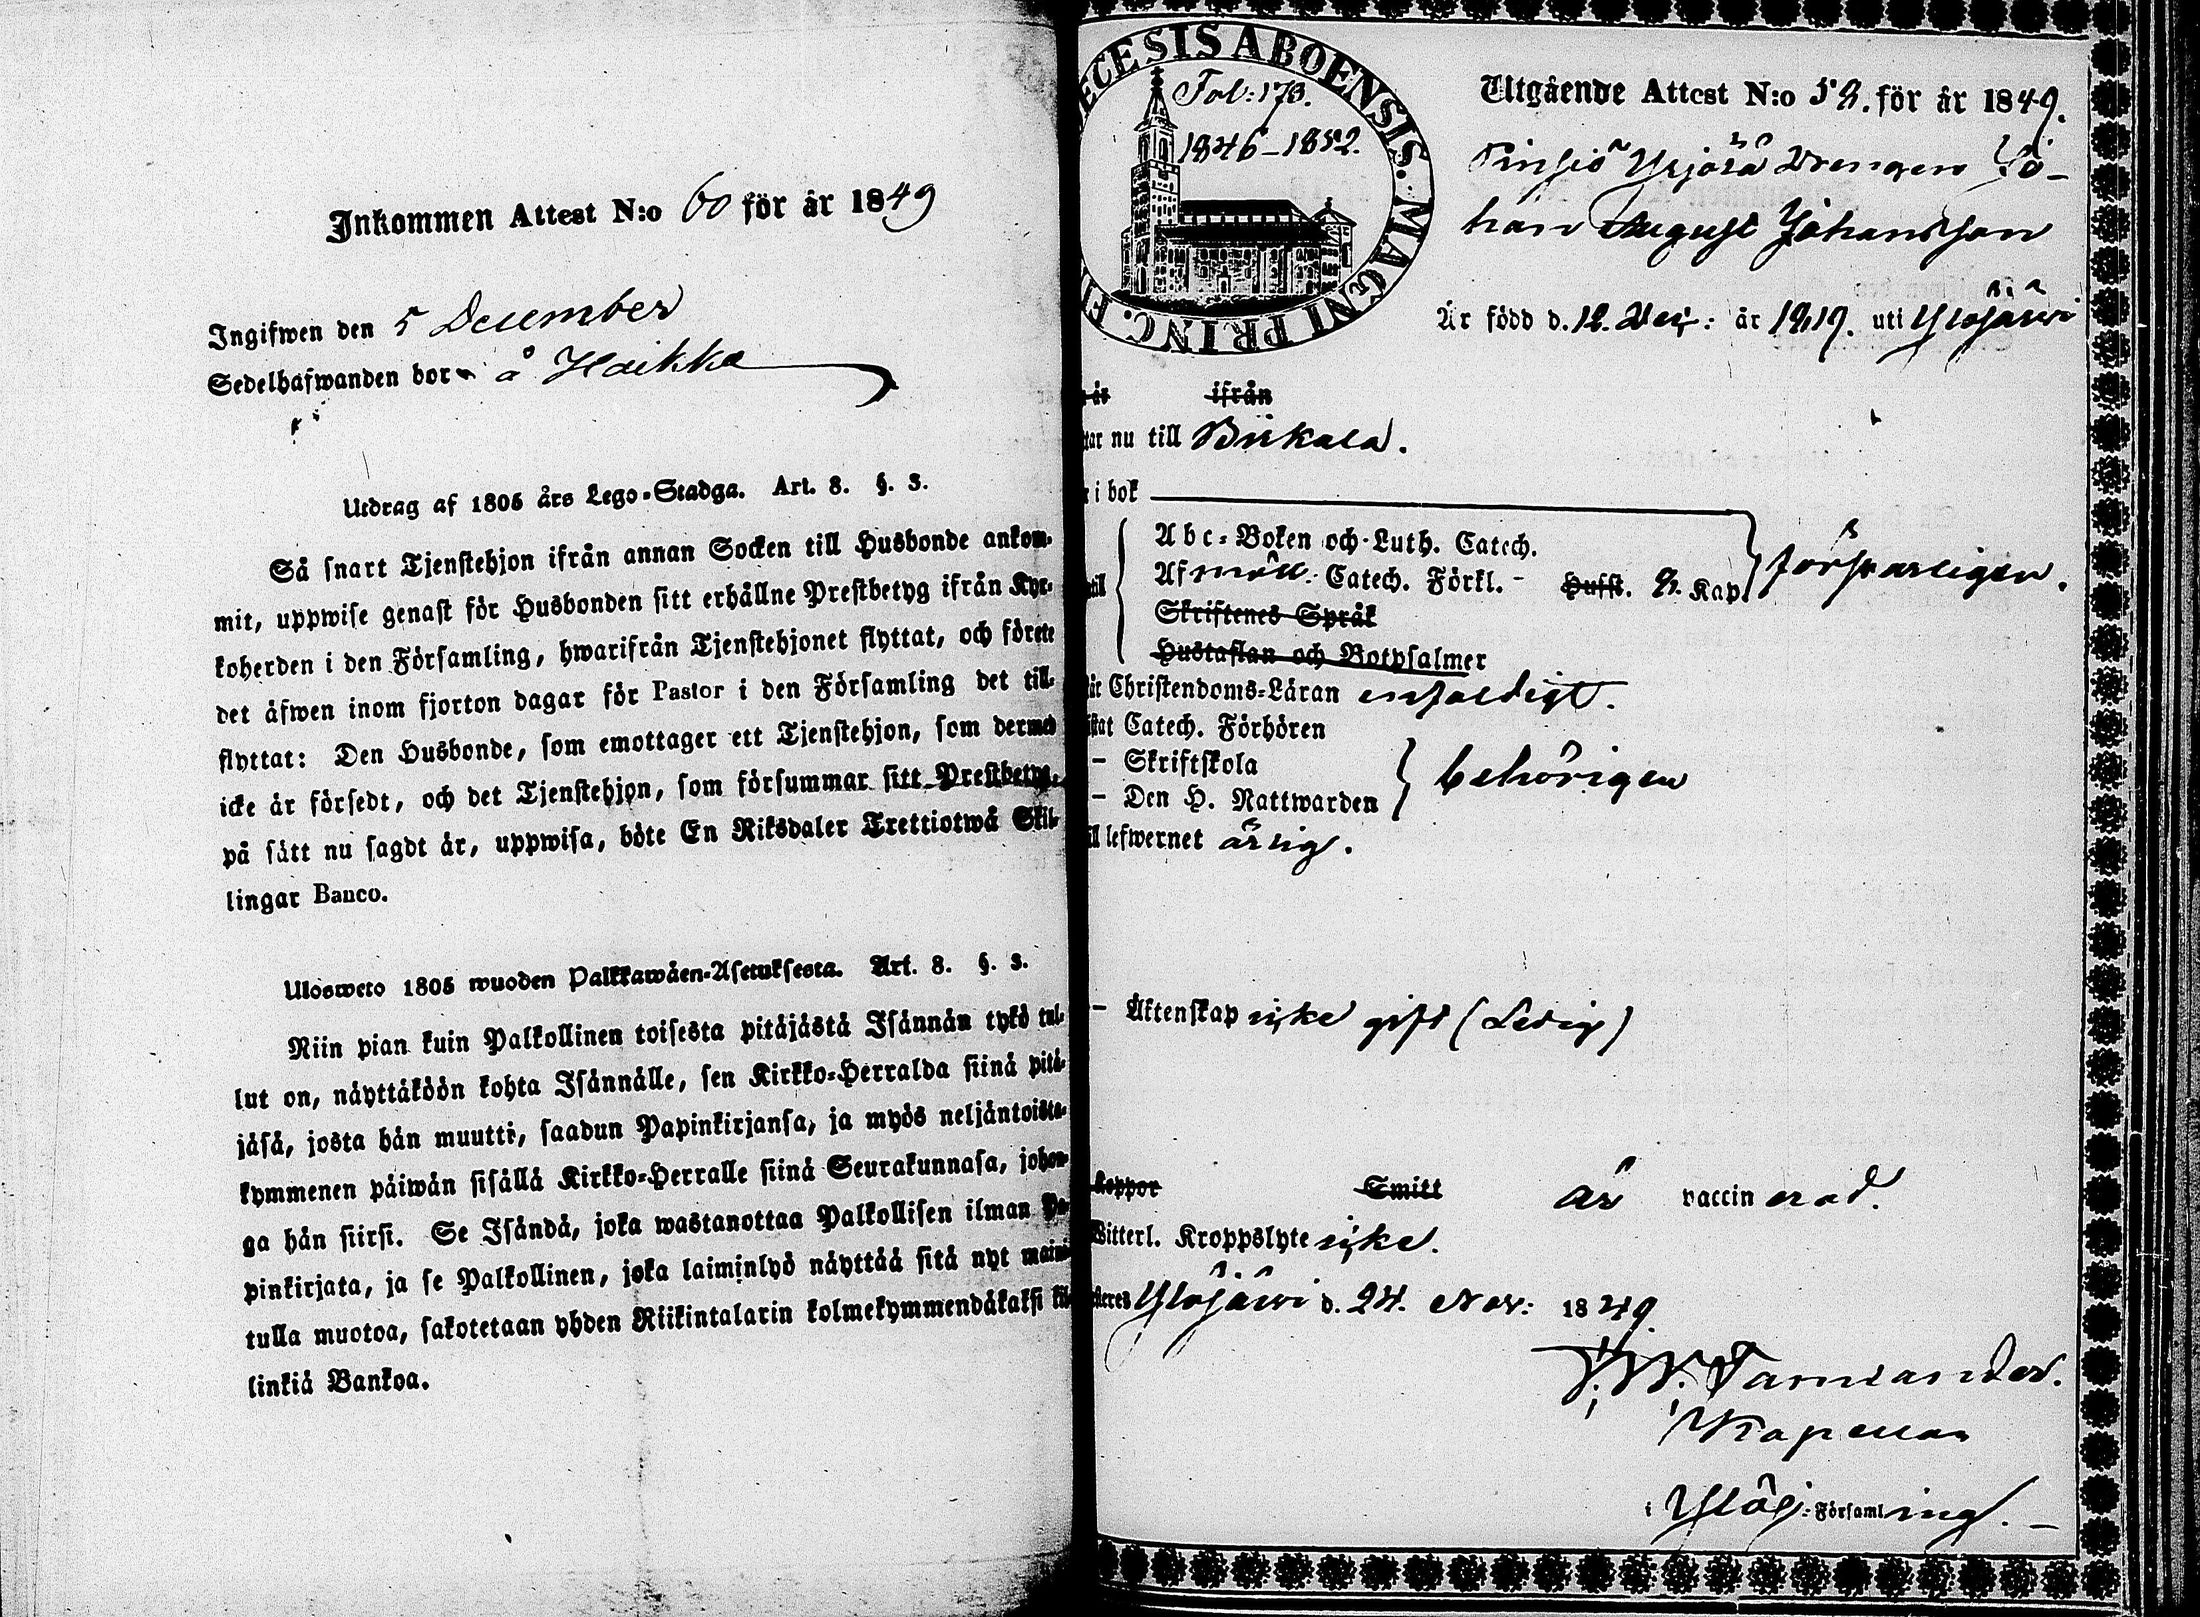 Inkommen Attest N:o 60 för år 1849
Ingifwen den 5 December
Sedelhafwanden bor å Haikka
Utdrag af 1805 års Lego-Stadga. Art. 8. §. 3.
Så snart Tjenstehjon ifrån annan Socken till Husbonde ankom-
mit, uppwise genast för Husbonden sitt erhållne Prestbetyg ifrån Kyr-
koherden i den Församling, hwarifrån Tjenstehjonet flyttat, och förete
det äfwen inom fjorton dagar för Pastor i den Församling det till-
flyttat: Den Husbonde, som emottager ett Tjenstehjon, som dermed
icke är försedt, och det Tjenstehjon, som försummar sitt Prestbetyg,
på sätt nu sagdt är, uppwisa, böte En Riksdaler Trettiotwå Skil-
lingar Banco.
Ulosweto 1805 wuoden Palkkawäen-Asetuksesta. Art. 8. §. 3.
Niin pian kuin Palkollinen toisesta pitäjästä Isännän tykö tul-
lut on, näyttäköön kohta Isännälle, sen Kirkko-Herralda siinä pitä-
jäsä, josta hän muutti, saadun Papinkirjansa, ja myös neljäntoista-
kymmenen päiwän sisällä Kirkko-Herralle siinä Seurakunnasa, johon-
ga hän siirsi. Se Isändä, joka wastanottaa Palkollisen ilman Pa-
pinkirjata, ja se Palkollinen, joka laiminlyö näyttää sitä nyt maini
tulla muotoa, sakotetaan yhden Riikintalarin kolmekymmendäkaksi kil
linkiä Bankoa.
ECESIS ABOENSIS. MAGNI PRINC. F
Fol: 173.
1846-1852.
Utgående Attest N:o 52. för år 1849.
Pinsiö Yrjölä Drengen Jo-
han August Johansson
Är född d. 12. Dec: år 1819. uti Ylöjärwi
år ifrån
tar nu till Birkala.
i bok
Abc-Boken och Luth. Catech.
Af Catech. Förkl. - Husst. 2. Kap. försvarligen.
Skriftenes Språk
Hustaflan och Botpsalmer
Christendoms-Läran enfaldigt.
stat Catech. Förhören
- Skriftskola
- Den H. Nattwarden behörigen
ill lefwernet ärlig.
- Äktenskap icke gift (Ledig)
Koppor Smitt är vaccinerad.
Witterl. Kroppslyte icke.
teres Ylöjärwi d. 24. Nov: 1849.
Kapellan
i Ylöj: Församling. -